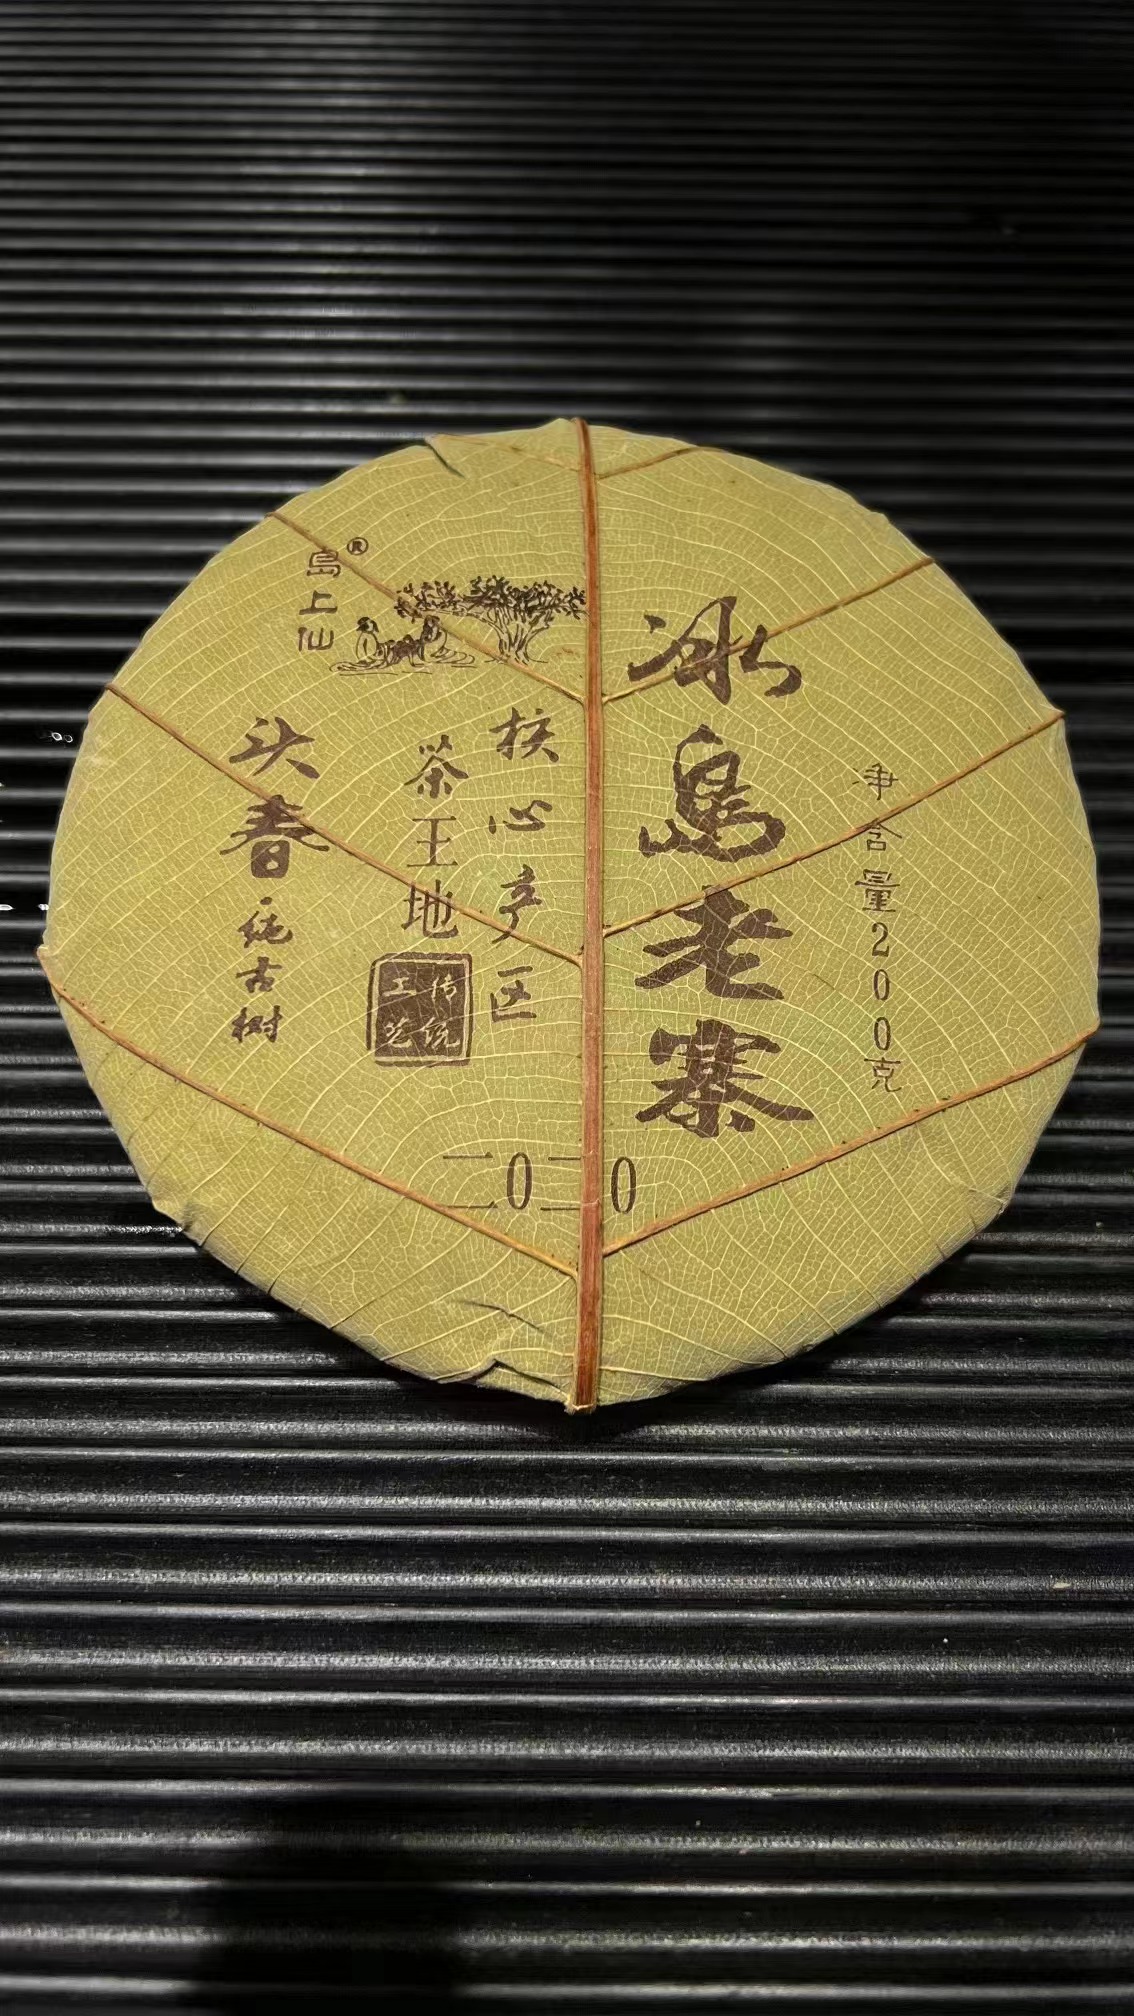 净含量200克
冰島老寨
核心产区
茶王地
传统工艺
島上仙®
头春
纯古树
二0二0